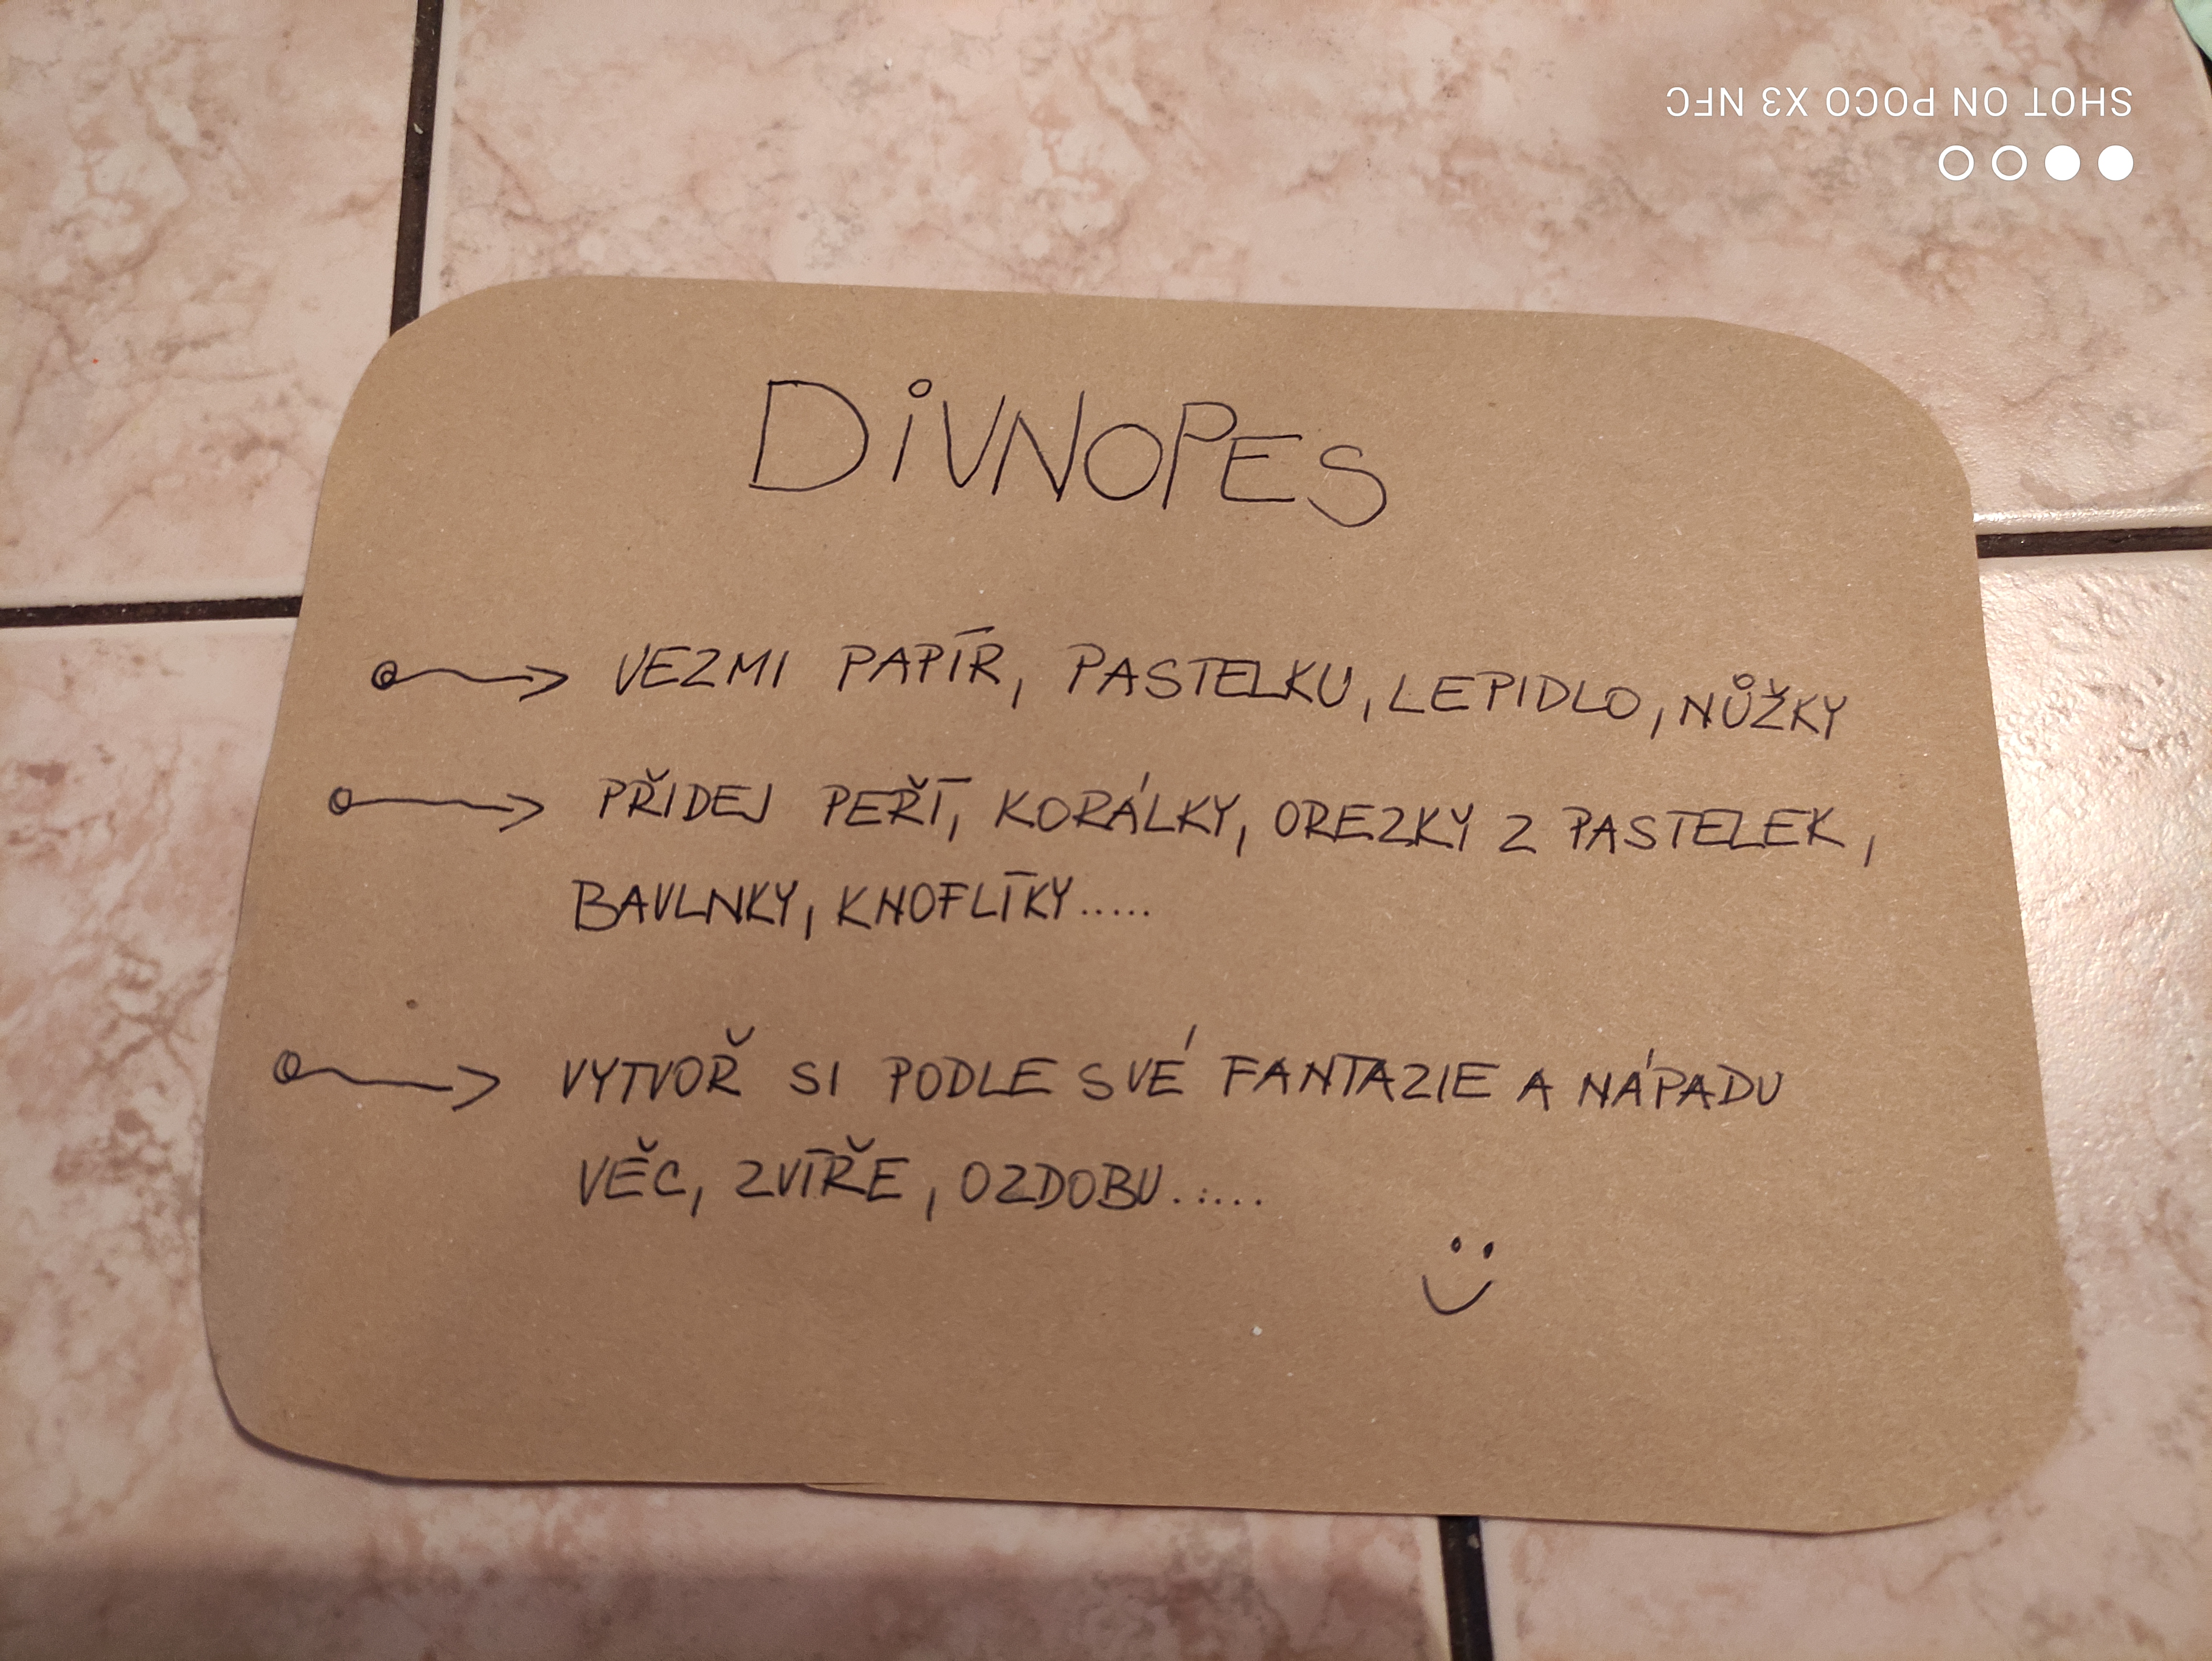 SHOT ON POCO X3 NFC
DiVNOPES
VEZMI PAPÍR, PASTELKU, LEPIDLO, NŮŽKY
PŘIDEJ PEŘÍ, KORÁLKY, OREZKY Z PASTELEK,
BAVLNKY, KNOFLÍKY.....
VYTVOŘ SI PODLE SVÉ FANTAZIE A NÁPADU
VĚC, ZVÍŘE, OZDOBU......